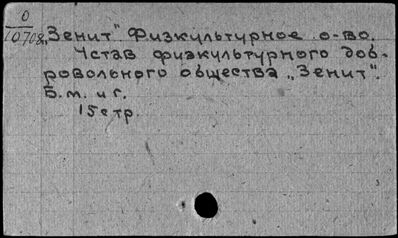 О
10708
„Зенит" Физкультурное о-во.
Устав физкультурного доб-
ровольного общества „Зенит".
Б.м. и г.
15 стр.